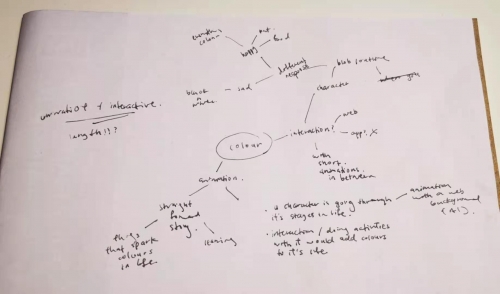 colour
happy
food
different
sad
black
white.
character
interaction?
web
app? x
with
short
animations
in between
animation.
straight
forward
story.
learning
things
that spark
colours
in life.
& interactive.
length???
· a character is going through
it's stages in life.
animation
with a web
background
(AI).
· interaction / doing activities
with it would add colours
to it's life